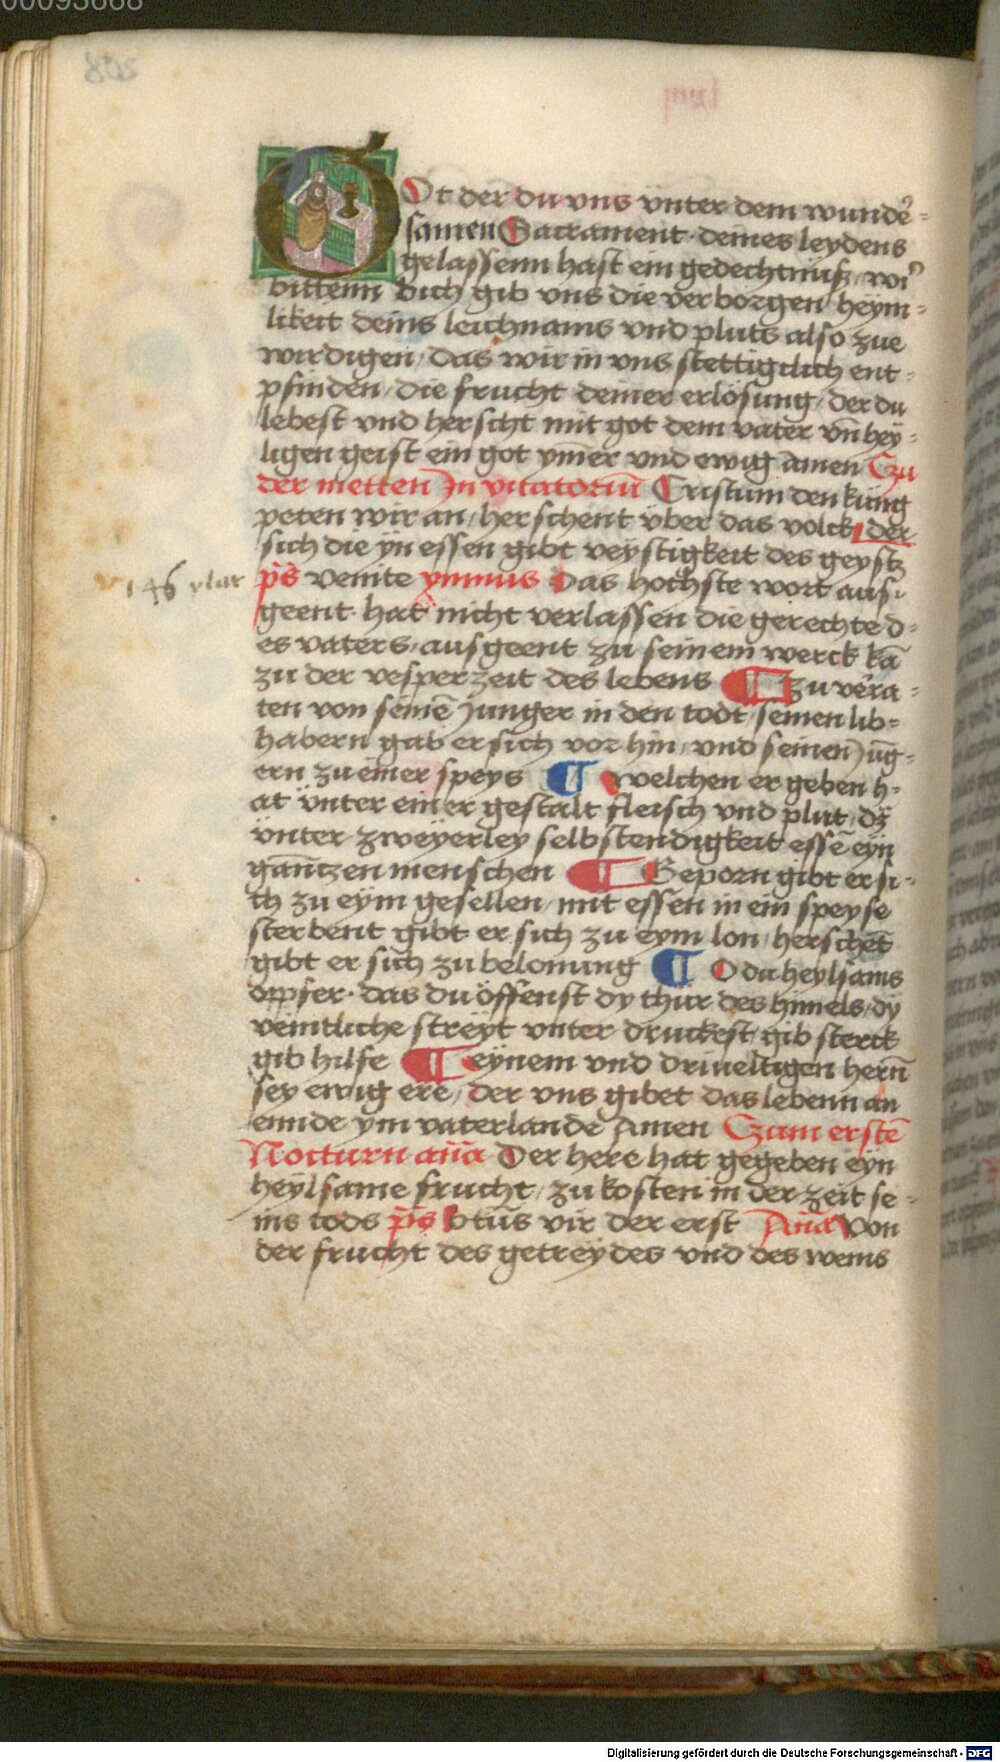 00093668
Ot der du vns vnter dem wunde᷑=
samen Sacrament· deines leydens
gelassenn hast ein gedechtnuß, wi᷑
bittenn dich gib vns die verborgen heym=
likeit deins leichnams vnd pluts also zue
wirdigen, das wir in vns stettigclich ent=
pfinden, die frucht deiner erlösung, der du
lebest vnd herscht mit got dem vater vn̄ hey=
ligen geist ein got ym̄er vnd ewig amen Czu
der metten In vitatoriū Cristum den kúng
peten wir an, herschent vber das volck, der
sich die yn essen gibt veystigkeit des geystz
146 plat p̄s venite ymnus Das hochste wort aus=
geent· hat nicht verlassen die gerechte d=
es vaters, ausgeent zu seinem werck kā
zu der vesperzeit des lebens ¶ Zu vera=
ten von seinē Junger in den todt, seinen lib=
habern gab er sich vor hin, vnd seinen Jūg=
ern zu einer speys ¶ welchen er geben h=
at vnter einer gestalt fleisch vnd plut, dz
vnter zweyerley selbstendigkeit essē eyn
gantzen menschen ¶ Geporn gibt er si=
ch zu eym gesellen, mit essen in ein speyse
sterbent gibt er sich zu eym lon, herschēt
gibt er sich zu belonung ¶ O du heylsams
opfer· das du öffenst dy thur des himels, dy
veintliche streyt vnter druckest, gib sterck
gib hilfe ¶ eynem vnd driueltigen hern̄
sey ewig ere, der vns gibet das lebenn an
ennde ym vaterlande Amen Czum erstē
Nocturn an̄a Der here hat gegeben eyn
heylsame frucht, zu kosten in der zeit se=
ins tods p̄s btūs vir der erst An̄a Von
der frucht des getreydes vnd des weins
Digitalisierung gefördert durch die Deutsche Forschungsgemeinschaft - DFG